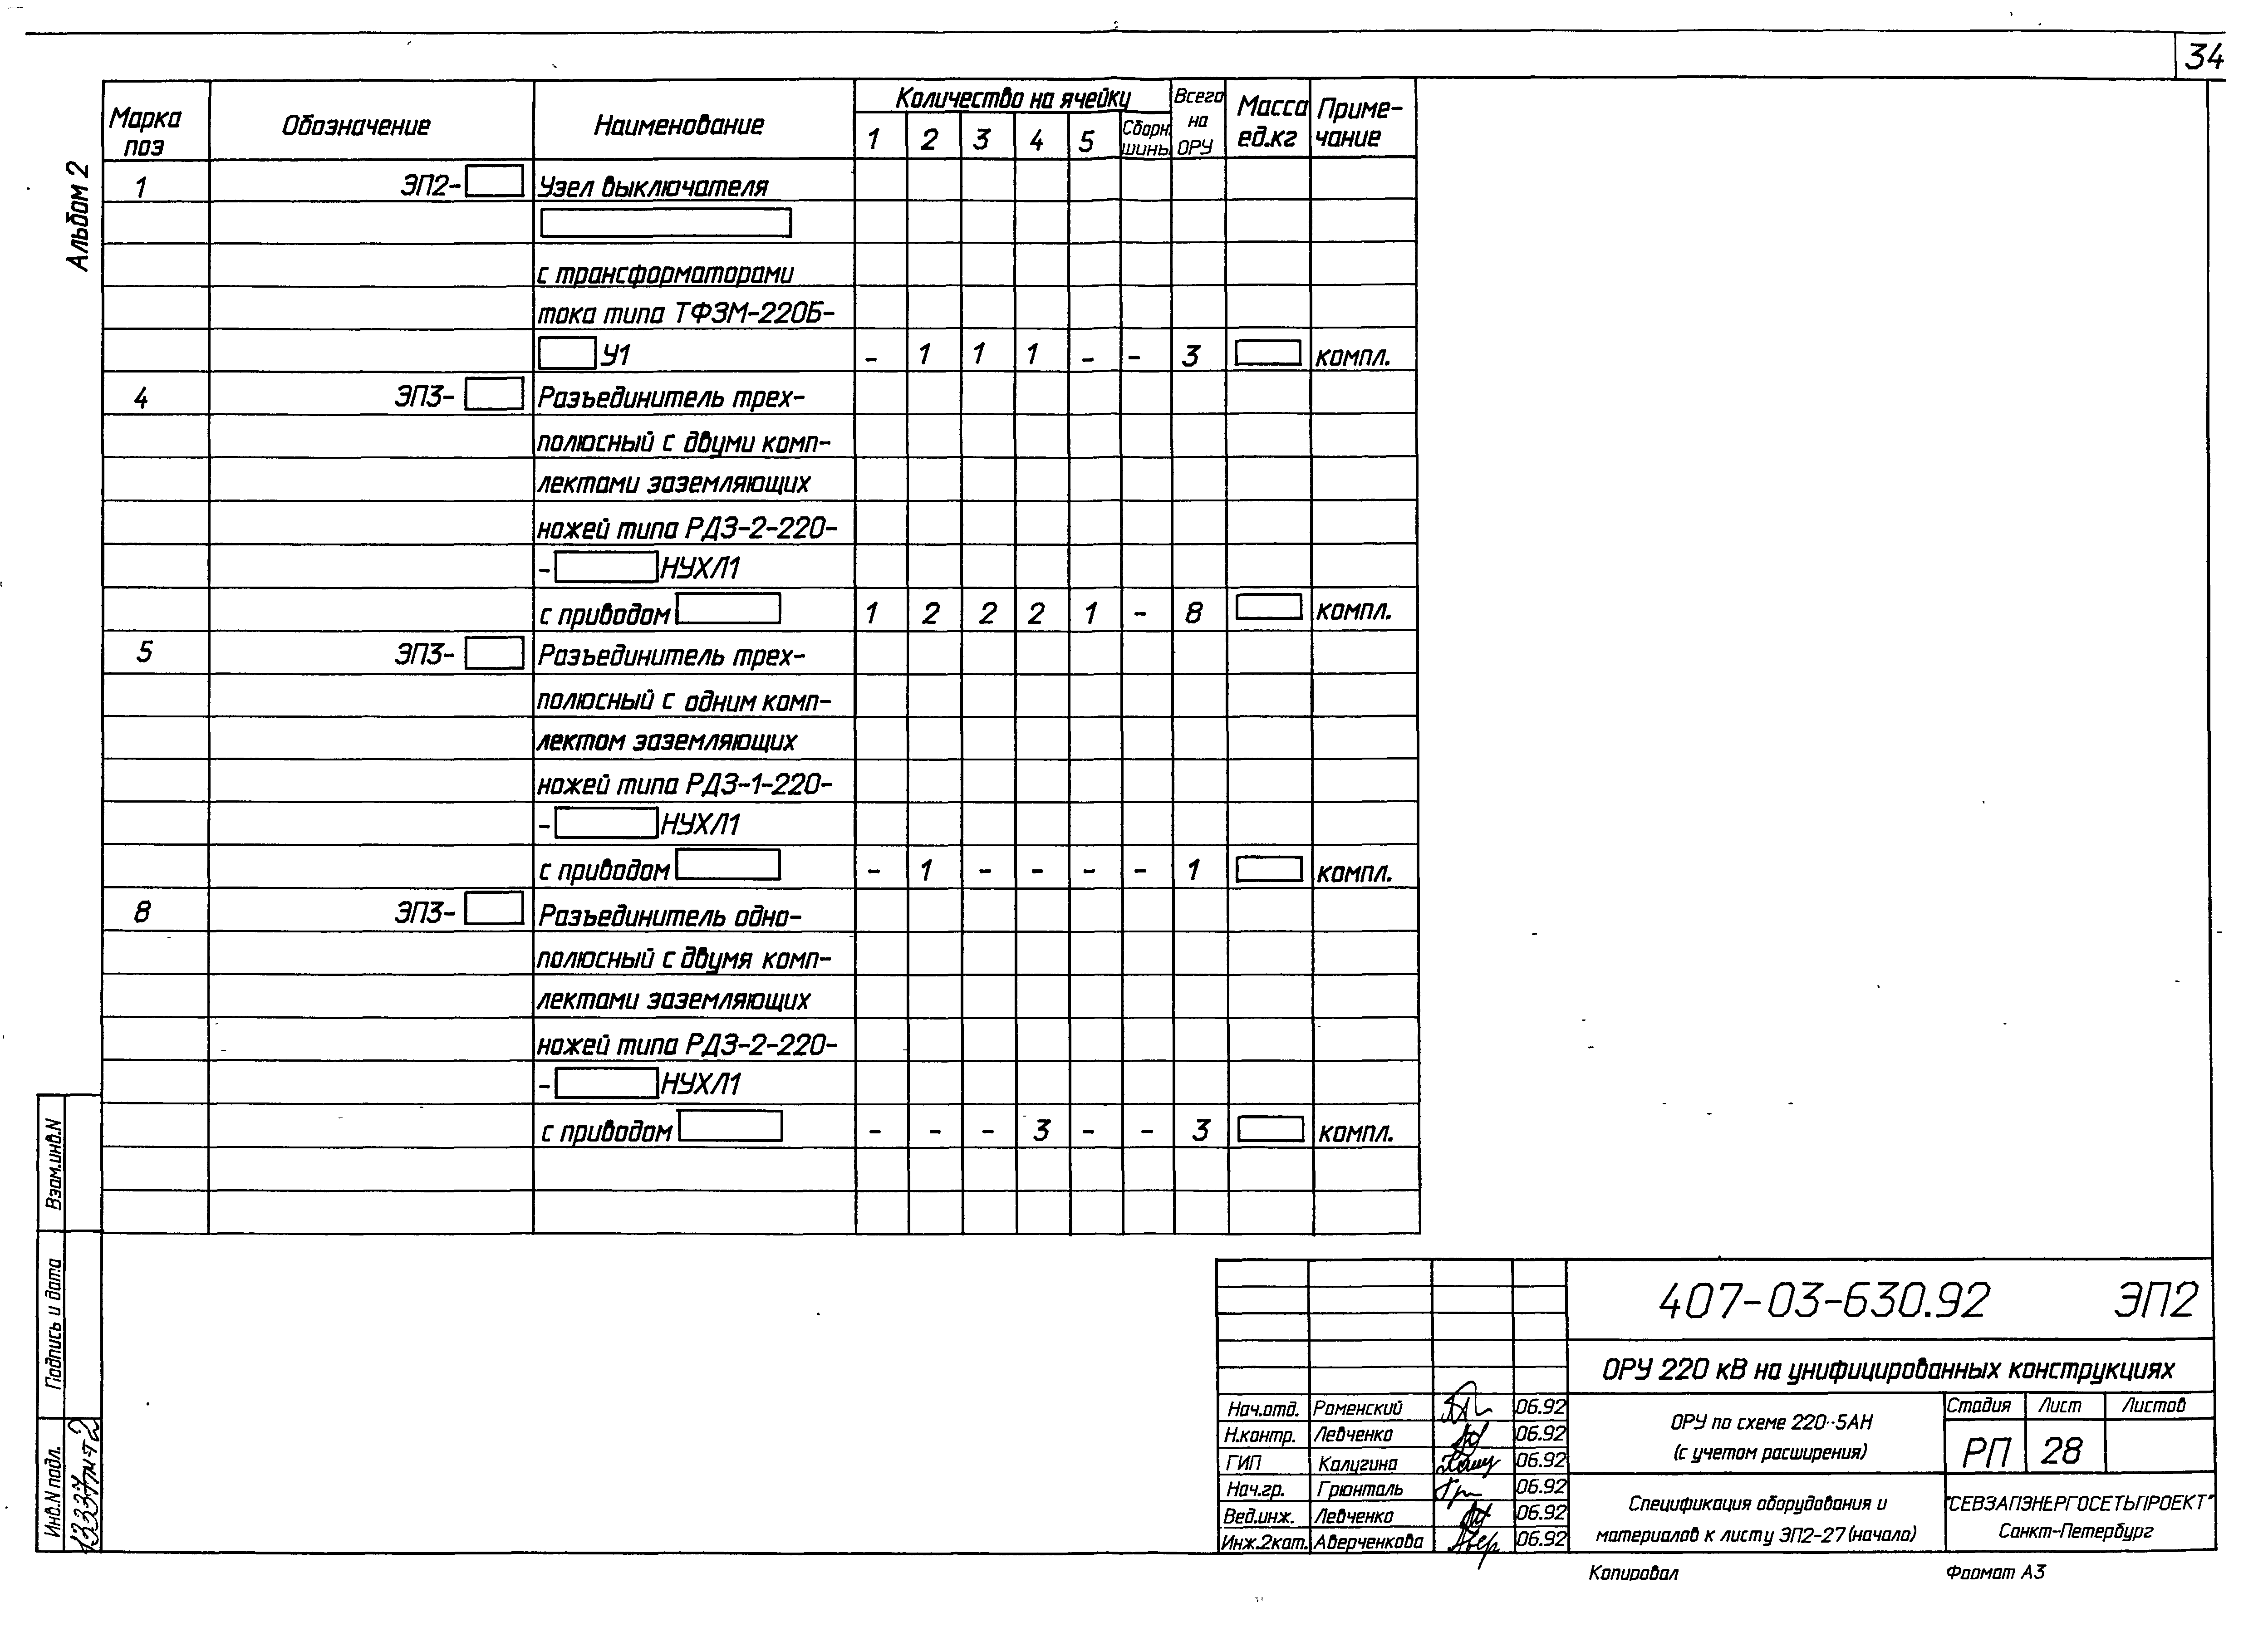 34
Альбом 2
Марка поз
Обозначение
Наименование
Количество на ячейку
1 2 3 4 5 Сборн. шины
Всего на ОРУ
Масса ед.кг
Приме-
чание
1 ЭП2- Узел выключателя
с трансформаторами
тока типа ТФЗМ-220Б-
У1 - 1 1 1 - - 3 компл.
4 ЭП3- Разъединитель трех-
полюсный с двуми комп-
лектами заземляющих
ножей типа РДЗ-2-220-
- НУХЛ1
с приводом 1 2 2 2 1 - 8 компл.
5 ЭП3- Разъединитель трех-
полюсный с одним комп-
лектом заземляющих
ножей типа РДЗ-1-220-
- НУХЛ1
с приводом - 1 - - - - 1 компл.
8 ЭП3- Разъединитель одно-
полюсный с двумя комп-
лектами заземляющих
ножей типа РДЗ-2-220-
- НУХЛ1
с приводом - - - 3 - - 3 компл.
Взам.инв.N
Подпись и дата
Инв.N подл.
407-03-630.92 ЭП2
ОРУ 220 кВ на унифицированных конструкциях
Нач.отд. Роменский 06.92
Н.контр. Левченко 06.92
ГИП Калугина 06.92
Нач.гр. Грюнталь 06.92
Вед.инж. Левченко 06.92
Инж.2кат. Аверченкова 06.92
ОРУ по схеме 220-5АН
(с учетом расширения)
Стадия Лист Листов
РП 28
Спецификация оборудования и
материалов к листу ЭП2-27 (начало)
"СЕВЗАПЭНЕРГОСЕТЬПРОЕКТ"
Санкт-Петербург
Копировал
Формат А3